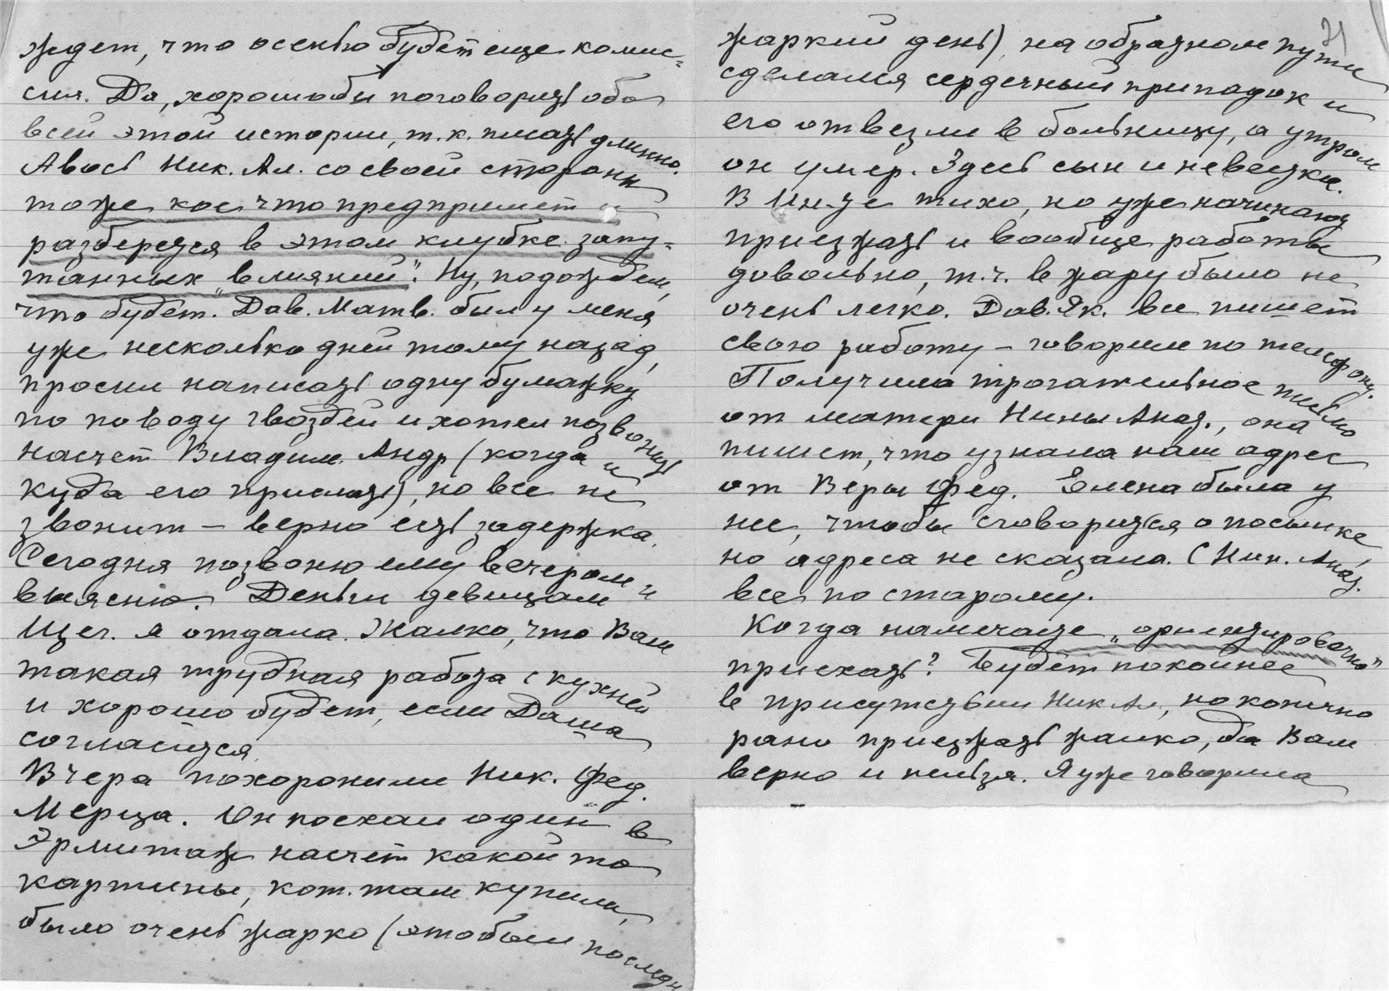 ждет, что осенью будет еще комис-
сия. Да, хорошо бы поговорить обо
всей этой истории, т.к. писать длинно.
Авось Ник. Ал. со своей стороны
тоже кое что предпримет и
разберется в этом клубке запу-
танных "влияний". Ну, подождем,
что будет. Дав. Матв. был у меня
уже несколько дней тому назад,
просил написать одну бумажку
по поводу гвоздей и хотел позвонить
насчет Владим. Андр. (когда и
куда его прислать), но все не
звонит – верно есть задержка.
Сегодня позвоню ему вечером и
выясню. Деньги девицам
Щег. я отдала. Жалко, что Вам
такая трудная работа с кухней
и хорошо будет, если Даша
согласится.
Вчера похоронили Ник. Фед.
Мерца. Он поехал один в
Эрмитаж насчет какой то
картины, кот. там купили,
было очень жарко (это был последн
21
жаркий день), на обратном пути
сделался сердечный припадок и
его отвезли в больницу, а утром
он умер. Здесь сын и невестка.
В Ин-те тихо, но уже начинают
приезжать и вообще работы
довольно, т.ч. в жару было не
очень легко. Дав. Як. все пишет
свою работу – говорили по телефону.
Получила трогательное письмо
от матери Нины Анат., она
пишет, что узнала наш адрес
от Веры Фед. Елена была у
нее, чтобы сговориться о посылке
но адреса не сказала. С Ник. Анат.
все по старому.
Когда намечаете "ориентировочно"
приехать? Будет покойнее
в присутствии Ник Ал, но конечно
рано приезжать жалко, да Вам
верно и нельзя. Я уже говорила